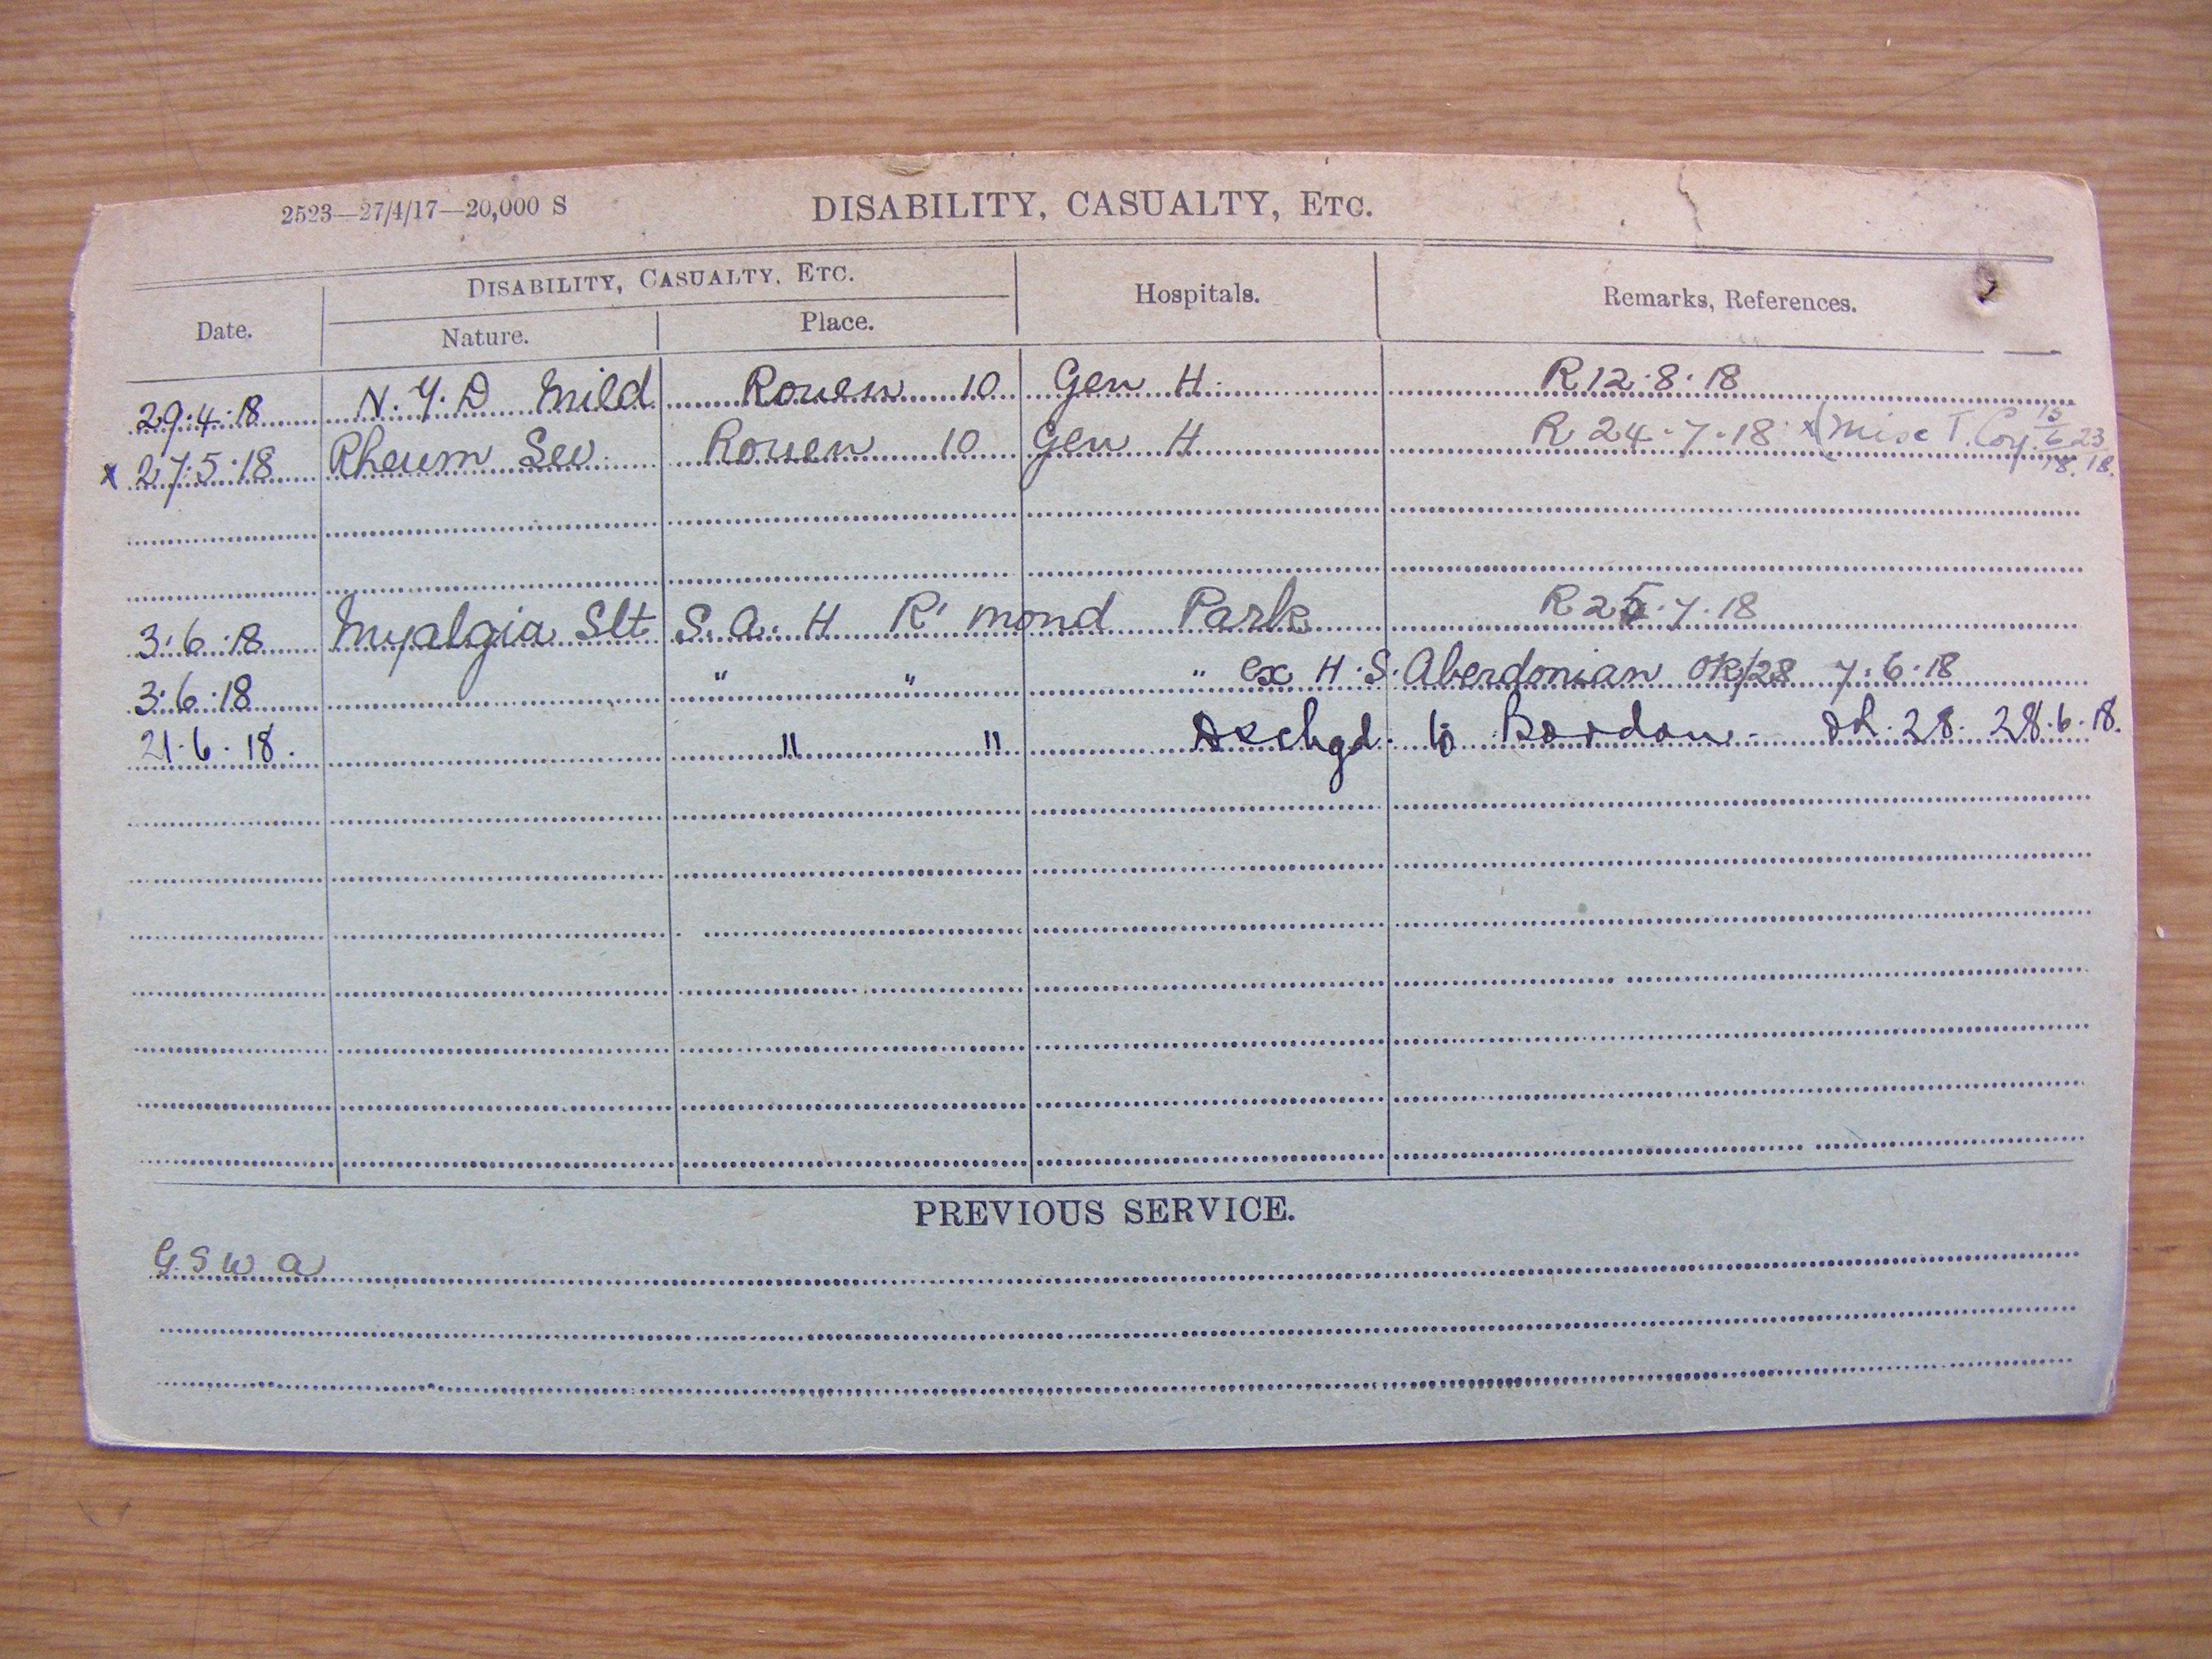 2523—27/4/17—20,000 S
DISABILITY, CASUALTY, ETC.
DISABILITY, CASUALTY, ETC.
Date. Nature. Place. Hospitals. Remarks, References.
29.4.18 N.Y.D Mild Rouen 10 Gen H. R 12.8.18
x 27.5.18 Rheum Sev. Rouen 10 Gen H R 24.7.18 x (Misc T. Coy. 15/6/18 23/18.
3.6.18 Myalgia Slt S.A.H R'mond Park R 25.7.18
3.6.18 " " " ex H.S. Aberdonian OR/28 7.6.18
21.6.18. " " Dschgd. to Bordon. 28. 28.6.18.
PREVIOUS SERVICE.
G S W A